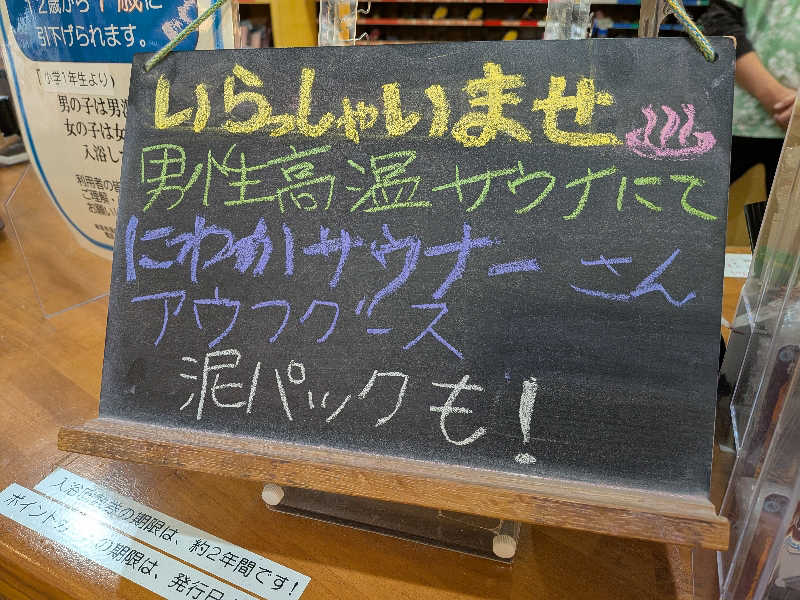 2歳から7歳に
引下げられます。
『小学1年生より』
男の子は男
女の子は女
入浴し
利用者の
ご理解・
お願い
いらっしゃいませ♨
男性高温サウナにて
にわかサウナーさん
アウフグース
泥パックも!
の期限は、約2年間です!
ポイントカ
の期限は、発行日